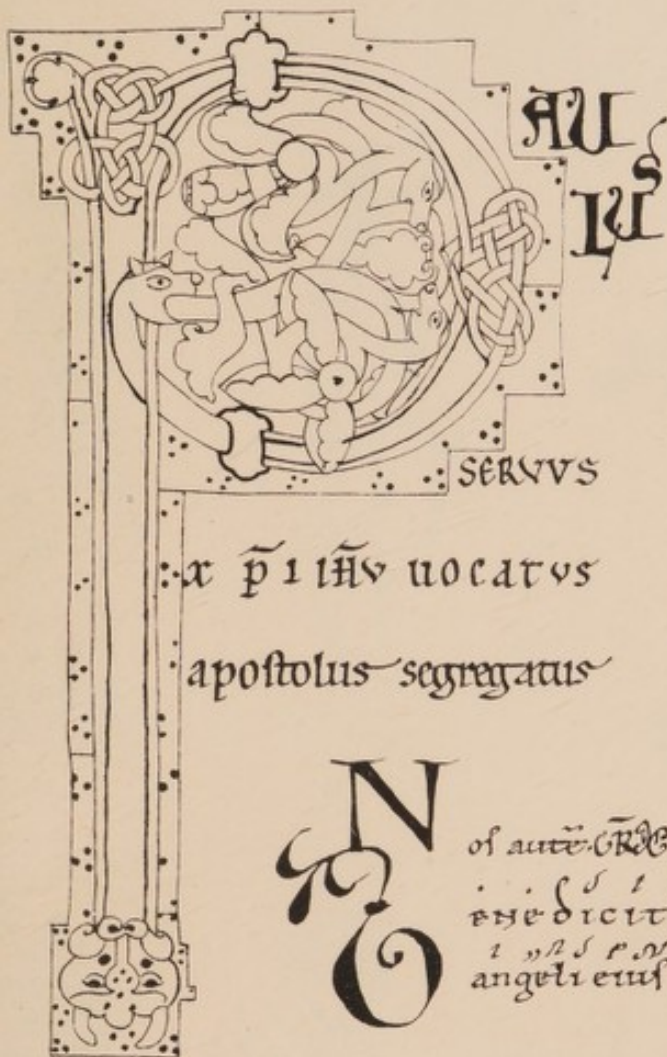 PAU
LUS
SERVVS
x p̄ ı ıH̄v uocatvs
apoſtolus segregatus
Noſ autē
Benedicit
angeli eiuſ